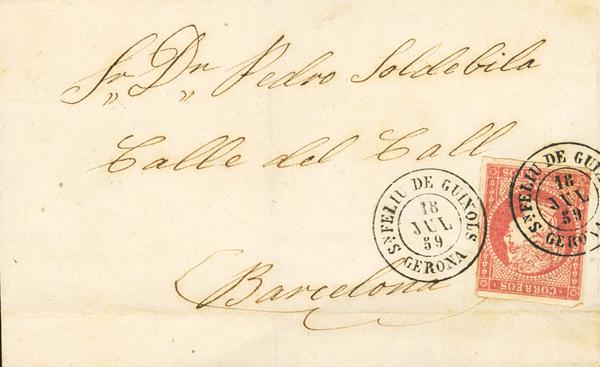 Sr. Dn. Pedro Soldebila
Calle del Call
Barcelona
Sn. FELIU DE GUIXOLS
18
JUL
59
GERONA
Sn. FELIU DE GUIXO
18
JUL
59
GERONA
CORREOS